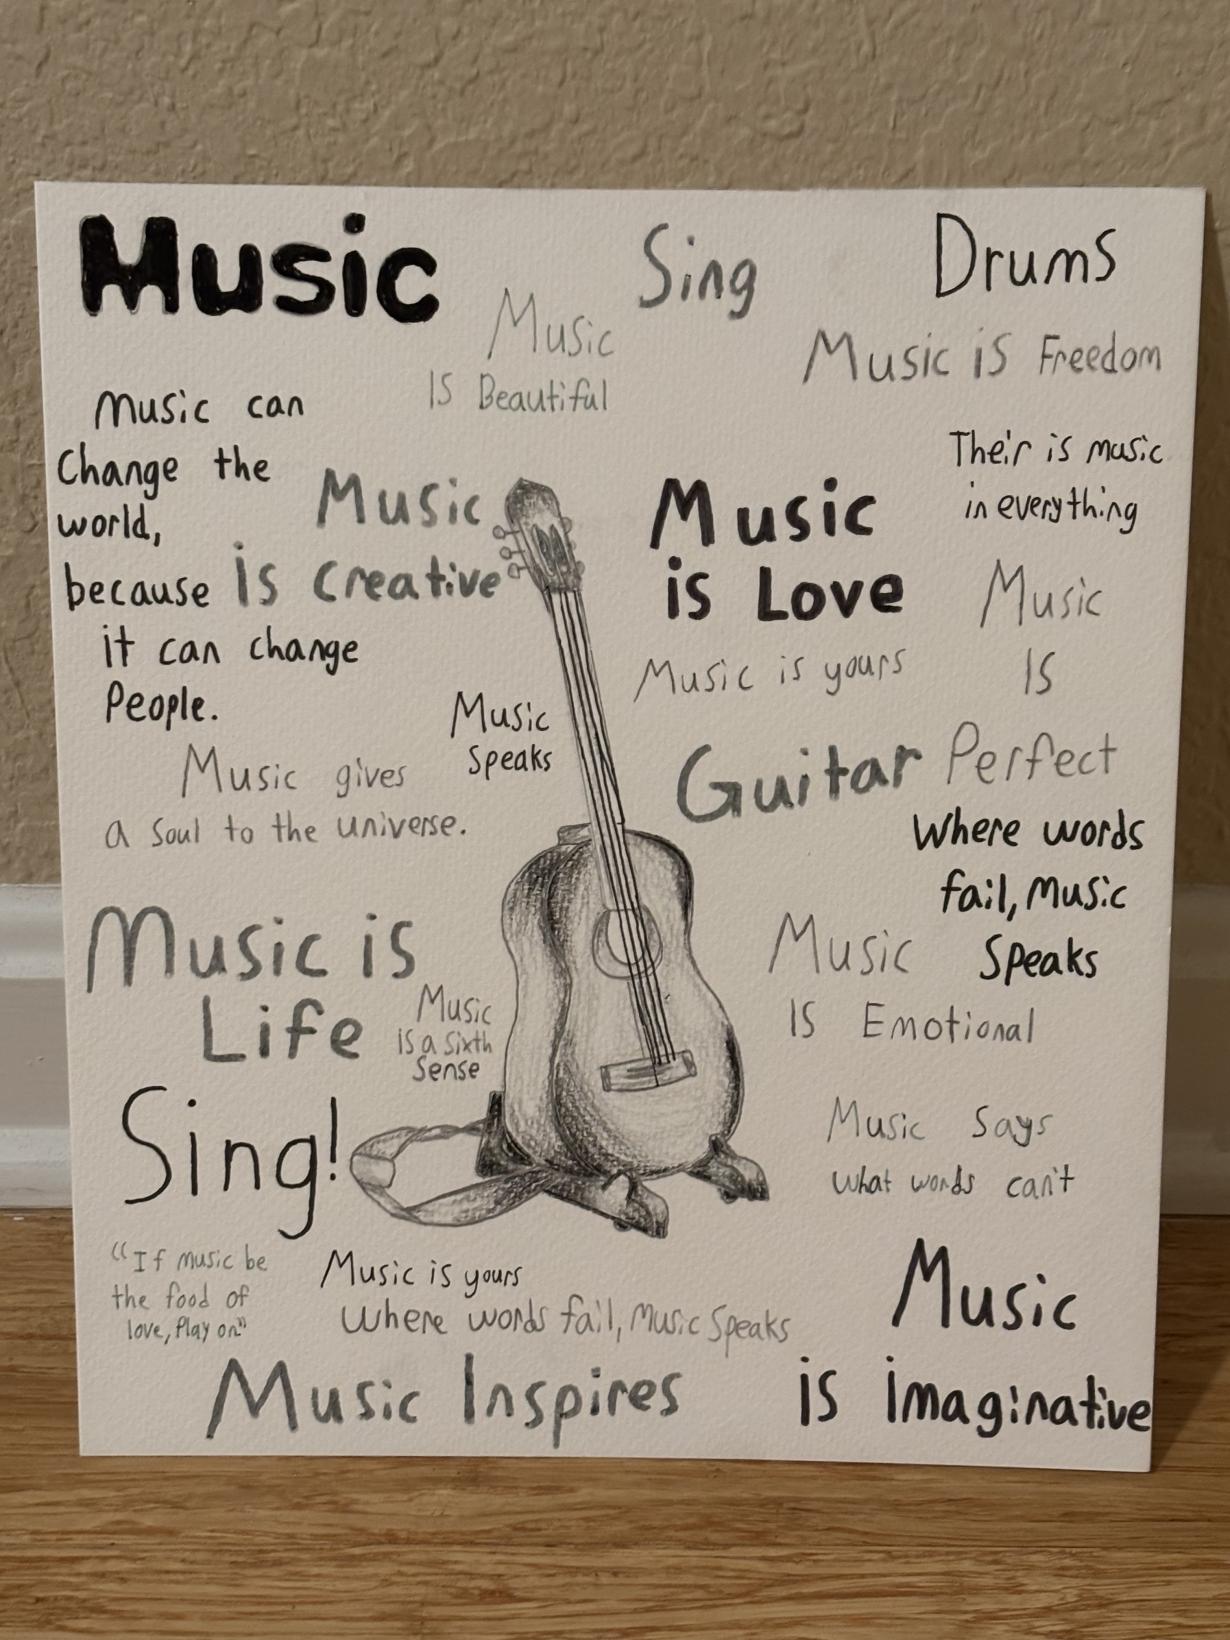 Music
Sing
Drums
Music
is Beautiful
Music is Freedom
Music can
Change the
world,
because
it can change
People.
Music
is Creative
Music
is Love
Their is music
in everything
Music is yours
Music
Is
Perfect
Music
Speaks
Music gives
a soul to the universe.
Guitar
Where words
fail, Music
Speaks
Music is
Life
Music
is a sixth
Sense
Music
Is Emotional
Sing!
Music says
what words can't
"If music be
the food of
love, Play on"
Music is yours
Where words fail, Music Speaks
Music Inspires
Music
is imaginative